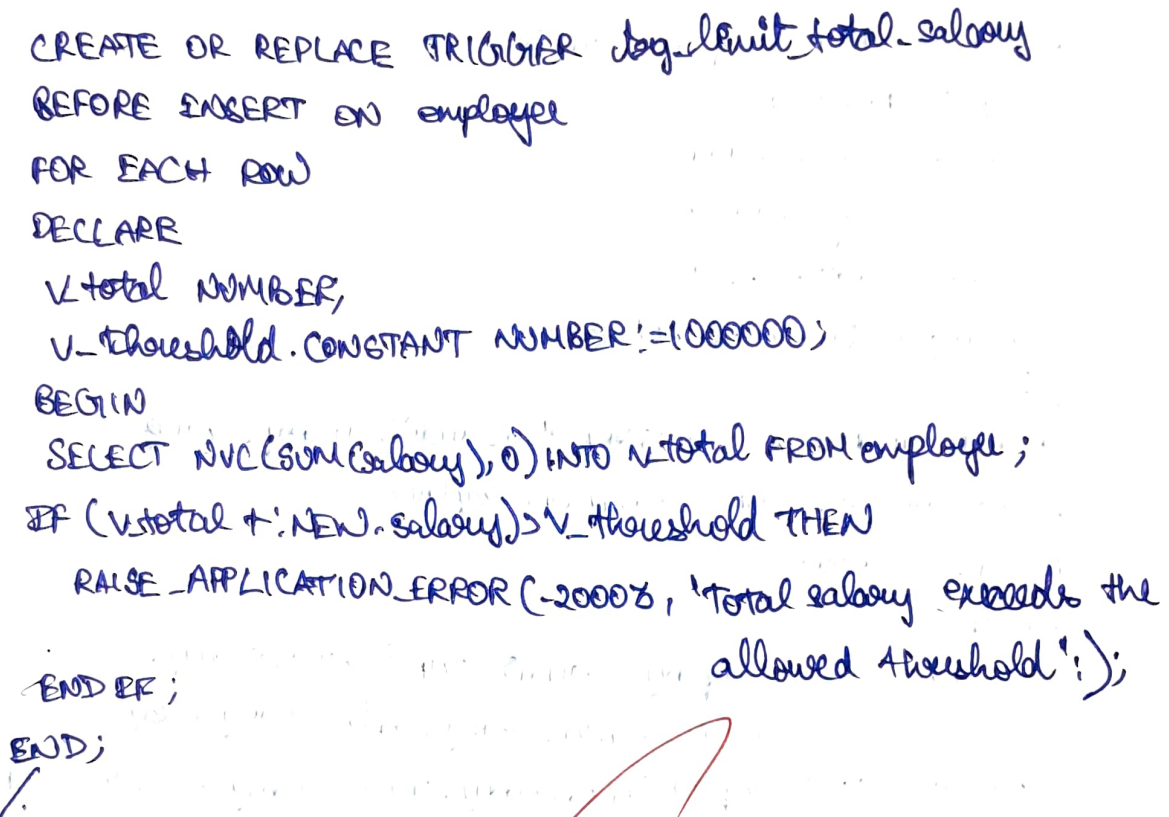 CREATE OR REPLACE TRIGGER trg_limit_total_salary
BEFORE INSERT ON employee
FOR EACH ROW
DECLARE
V_total NUMBER,
V_threshold.CONSTANT NUMBER:=1000000;
BEGIN
SELECT NVL(SUM(salary),0) INTO v_total FROM employee;
IF (v_total + :NEW.salary)>V_threshold THEN
RAISE_APPLICATION_ERROR(-20008, 'Total salary exceeds the
allowed threshold':);
END IF;
END;
/